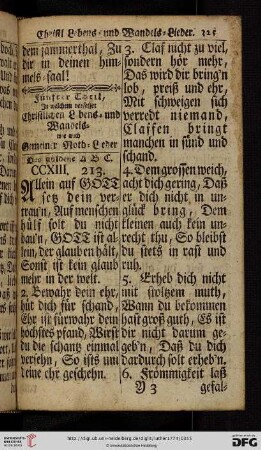 Christl. Lebens- und Wandels-Lieder. 325
dem jammerthal, Zu
dir in deinen him-
mels-saal!
Fünfter Theil,
In welchem verfasset
Christlichen Lebens- und
Wandels-
wie auch
Gemeine Noth-Lieder
Das güldene A B C.
CCXIII. 213.
Allein auf GOTT
setz dein ver-
trau'n, Auf menschen
hülf solt du nicht
bau'n, GOTT ist al-
lein, der glauben hält,
Sonst ist kein glaub
mehr in der welt.
2. Bewahr dein ehr,
hüt dich für schand,
Ehr ist fürwahr dein
höchstes pfand, Wirst
du die schantz einmal
versehn, So ists um
deine ehr geschehn.
3. Claf nicht zu viel,
sondern hör mehr,
Das wird dir bring'n
lob, preiß und ehr,
Mit schweigen sich
verredt niemand,
Claffen bringt
manchen in sünd und
schand.
4. Dem grossen weich,
acht dich gering, Daß
er dich nicht in un-
glück bring, Dem
kleinen auch kein un-
recht thu, So bleibst
du stets in rast und
ruh.
5. Erheb dich nicht
mit stoltzem muth,
Wann du bekommen
hast groß guth, Es ist
dir nicht darum ge-
geb'n, Daß du dich
dardurch solt erheb'n.
6. Frömmigkeit laß
Y 3 gefal-
http://digi.ub.uni-heidelberg.de/diglit/luther1774/0351
© Universitätsbibliothek Heidelberg
gefördert durch die
DFG